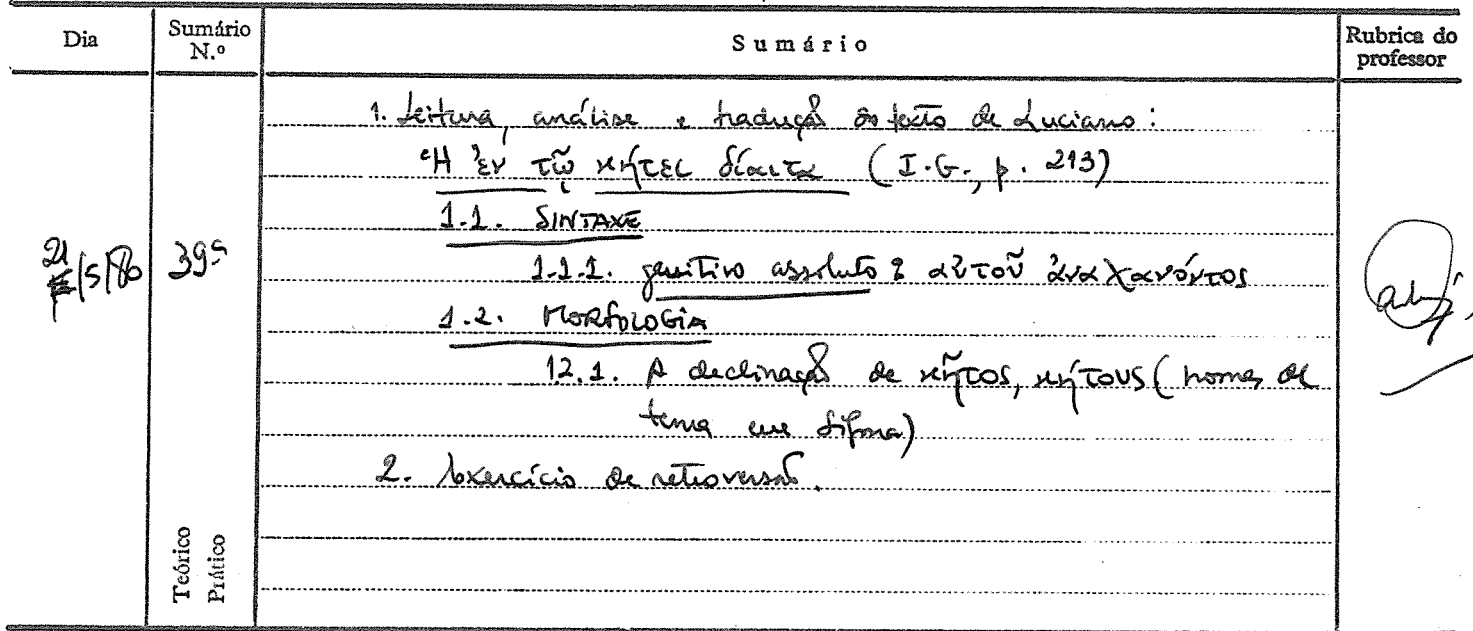 Dia
Sumário N.º
Sumário
Rubrica do professor
1. Leitura, análise e tradução do texto de Luciano:
Ἡ ἐν τῷ κήτει δίαιτα (I.G., p. 213)
1.1. SINTAXE
21/5/80
39º
1.1.1. genitivo absoluto: αὐτοῦ ἀναχανόντος
1.2. MORFOLOGIA
1.2.1. A declinação de κῆτος, κήτους (nomes de
tema em sigma)
2. Exercício de retroversão.
Teórico
Prático